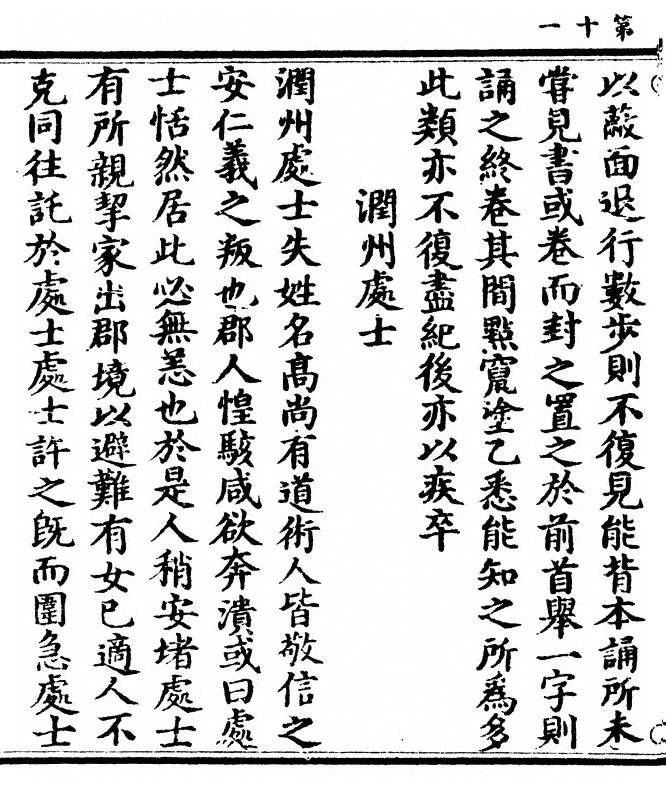 第十一
以蔽面退行數步則不復見能背本誦所未
嘗見書或卷而封之置之於前首舉一字則
誦之終卷其間㸃竄塗乙悉能知之所爲多
此類亦不復盡紀後亦以疾卒
潤州處士
潤州處士失姓名髙尚有道術人皆敬信之
安仁義之叛也郡人惶駭咸欲奔潰或曰處
士恬然居此必無恙也於是人稍安堵處士
有所親挈家出郡境以避難有女已適人不
克同往託於處士處士許之旣而圍急處士